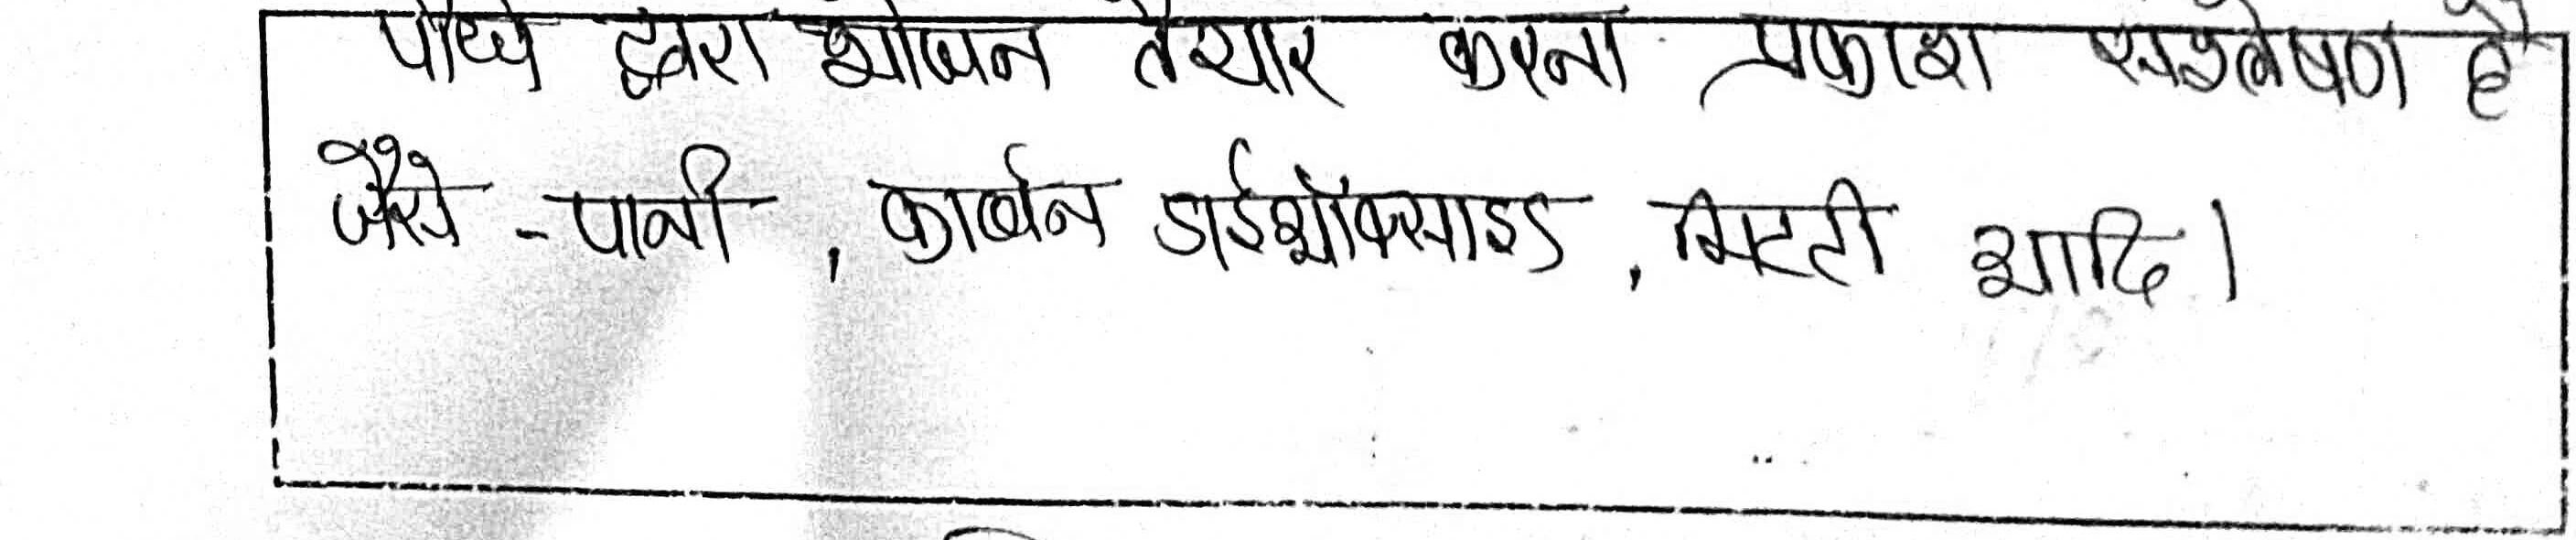 पौधे द्वारा भोजन तैयार करना प्रकाश सश्लेषण है
जैसे - पानी , कार्बन डाईऑक्साइड , मिट्टी आदि ।